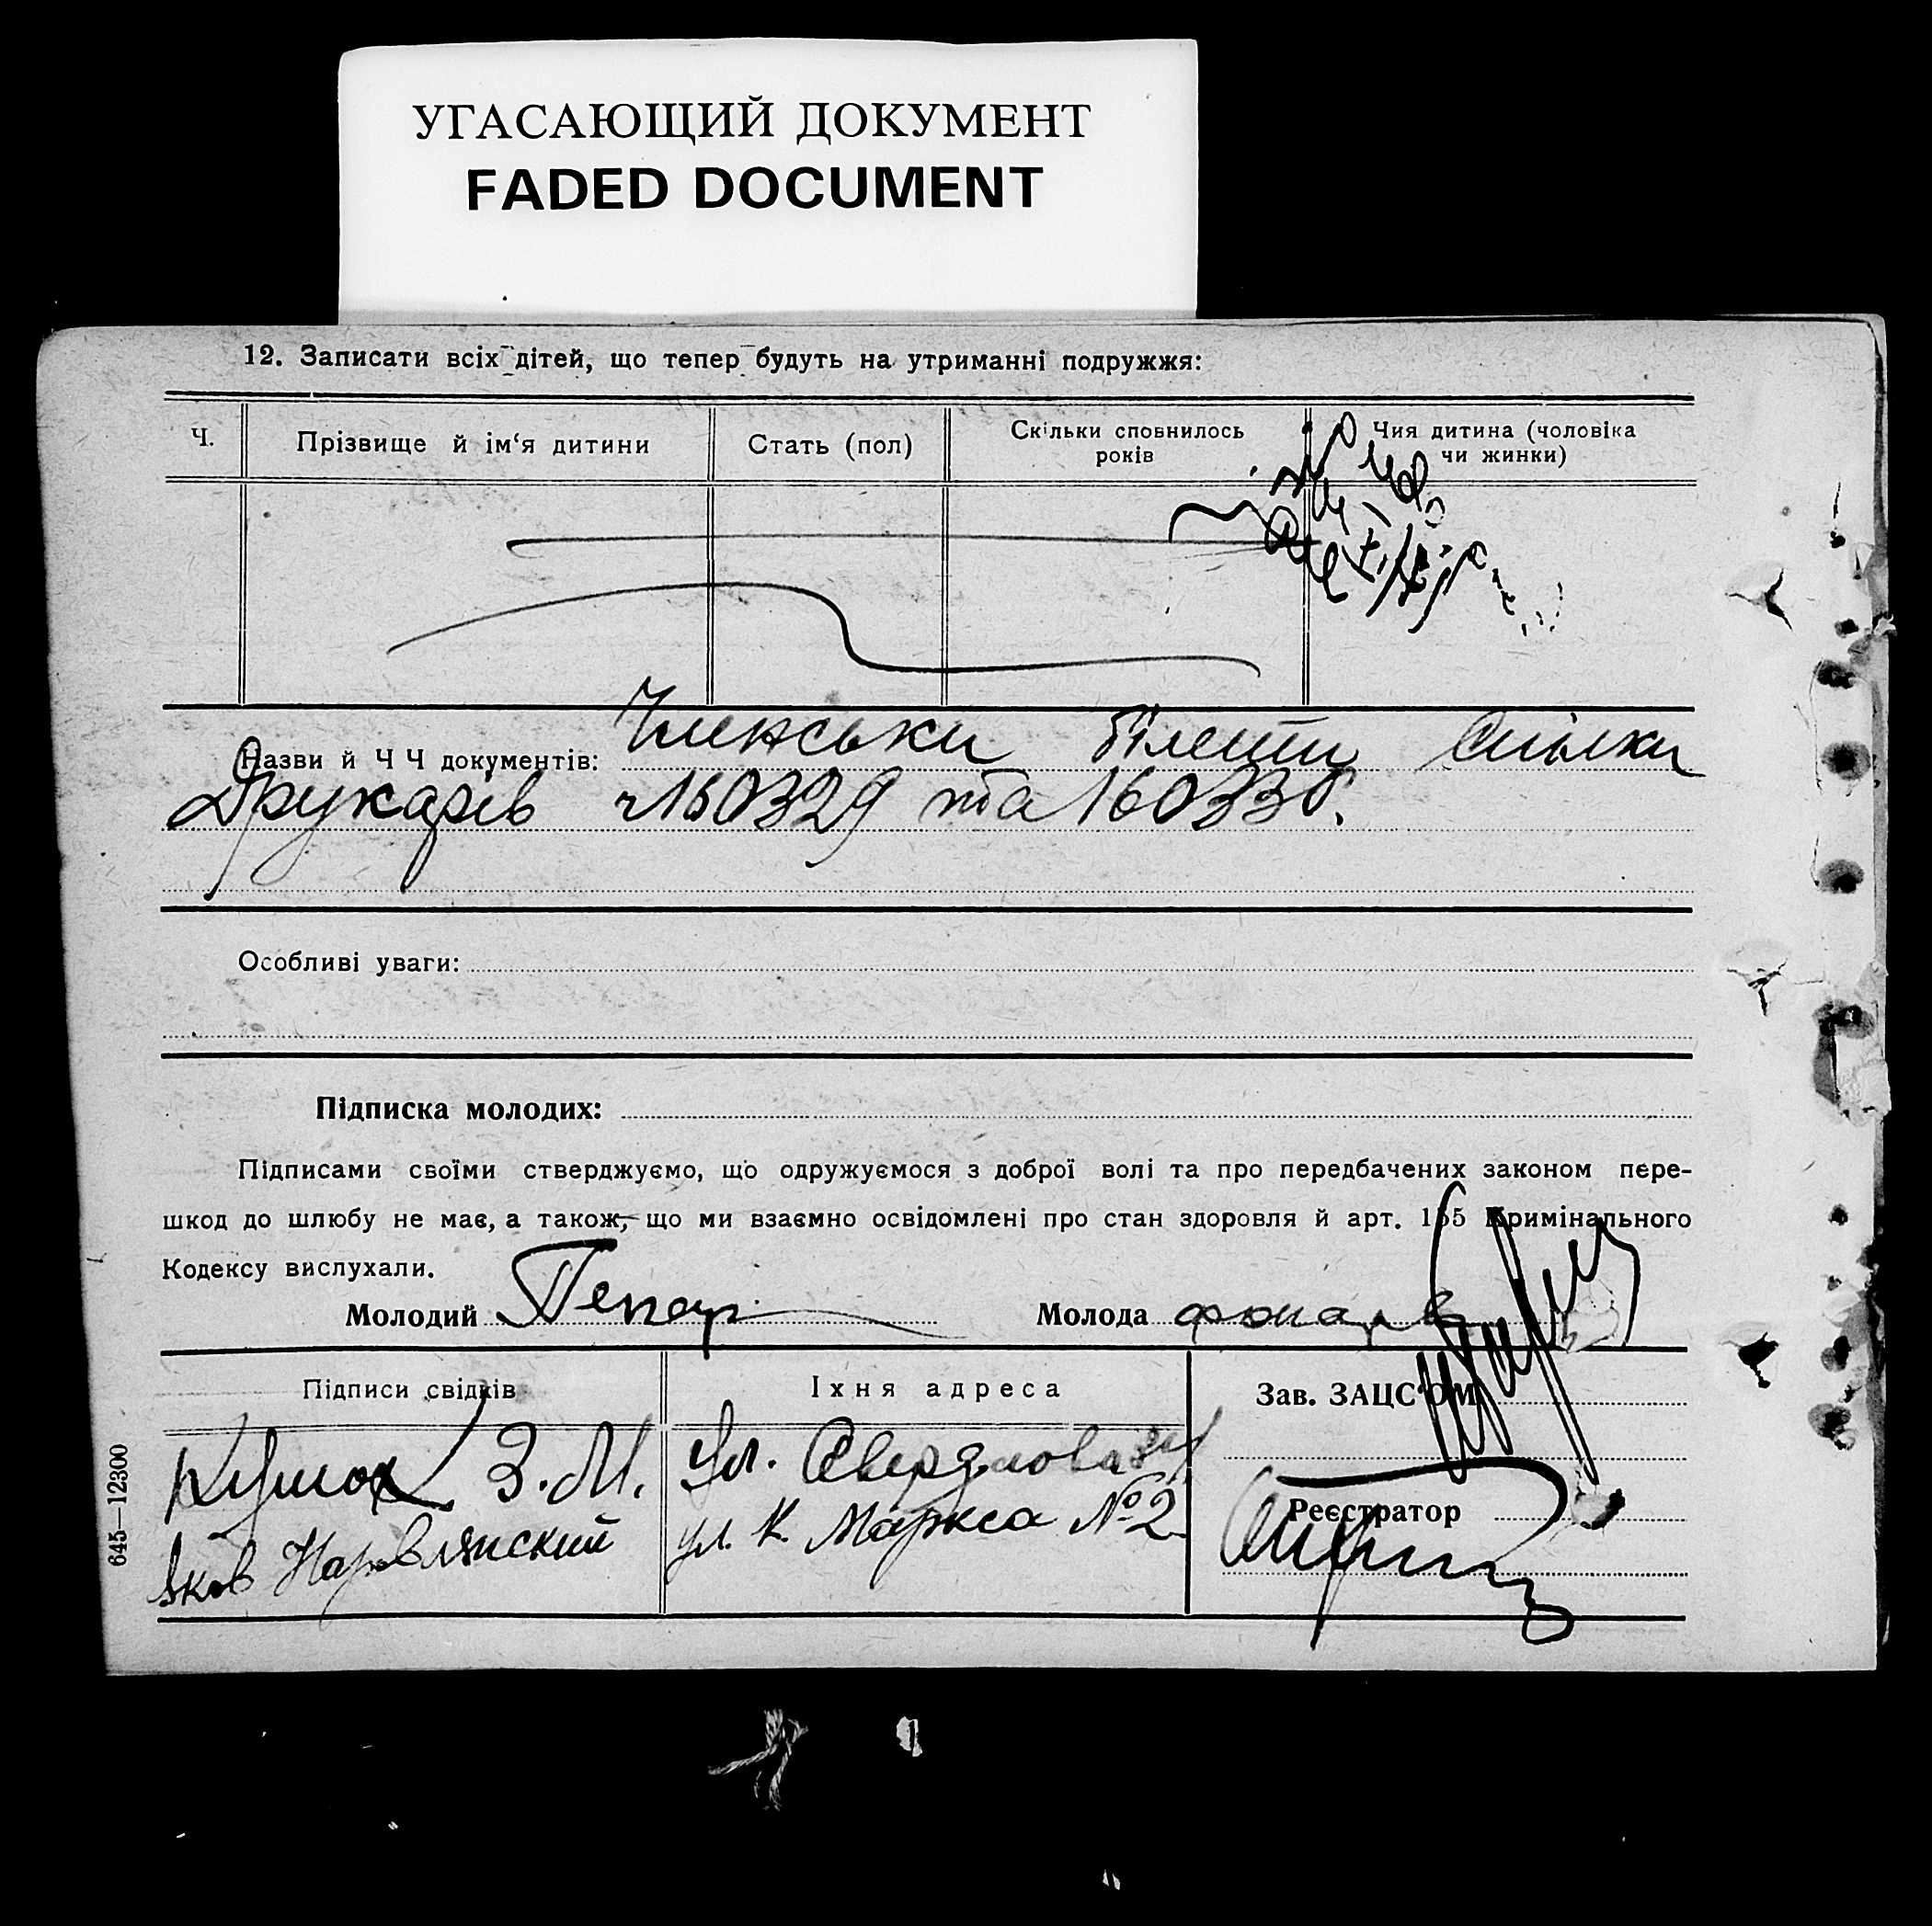 УГАСАЮЩИЙ ДОКУМЕНТ
FADED DOCUMENT
12. Записати всіх дітей, що тепер будуть на утриманні подружжя:
Ч.
Прізвище й ім‘я дитини
Стать (пол)
Скільки сповнилось
років
Чия дитина (чоловіка
чи жинки)
Назви й Ч Ч документів: Членськи білети Спілки
Друкарів ч 160329 та 160330.
Особливі уваги:
Підписка молодих:
Підписами своїми стверджуємо, що одружуємося з доброї волі та про передбачених законом пере-
шкод до шлюбу не має, а також, що ми взаємно освідомлені про стан здоровля й арт. 155 Кримінального
Кодексу вислухали.
Молодий
Молода
Підписи свідків
Їхня адреса
Зав. ЗАЦС‘ОМ
З. М.
Ул. Свердлова
Яков Наровлянский
ул. К. Маркса № 2
Реєстратор
645—12300